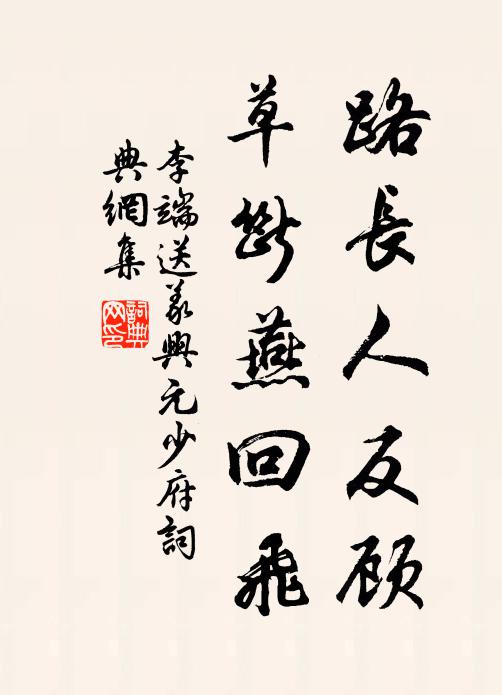 路長人反顾
草断燕回飛
李端送義興元少府詞
典網集
詞典
网印